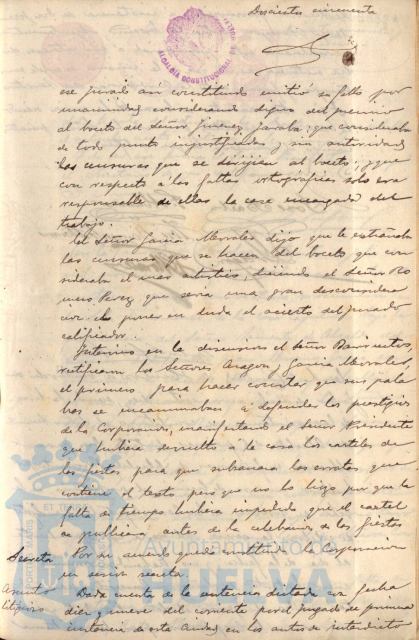 Doscientos cincuenta
ALCALDIA CONSTITUCIONAL
ese jurado así constituido emitió su fallo por
unanimidad considerando digno del premio
al boceto del Señor Jimenez Jaraba; que consideraba
de todo punto injustificadas y sin autoridad
las censuras que se dirigían al boceto; y que
con respecto á las faltas ortográficas solo era
responsable de ellas la casa encargada del
trabajo.
El Señor Garcia Morales dijo que le extrañaba
las censuras que se hacen del boceto que con
sideraba el mas artístico, diciendo el Señor Ro
mero Perez que seria una gran desconsidera
cion el poner en duda el acierto del Jurado
calificador.
Intervino en la discusion el Señor Barrientos,
rectificaron los Señores Aragon y Garcia Morales,
el primero para hacer constar que sus pala
bras se encaminaban á defender los prestigios
de la Corporacion, manifestando el Señor Presidente
que hubiera devuelto á la casa los carteles de
las fiestas para que subsanara los errores que
contiene el texto, pero que no lo hizo por que la
falta de tiempo hubiera impedido que el cartel
se publicara antes de la celebracion de las fiestas
Secreta Por su acuerdo quedó constituida la Corporacion
en sesion secreta.
Asunto Dada cuenta de la sentencia dictada con fecha
litigioso diez y nueve del corriente por el juzgado de primera
instancia de esta Ciudad en los autos de interdicto
Ayuntamiento de
HUELVA